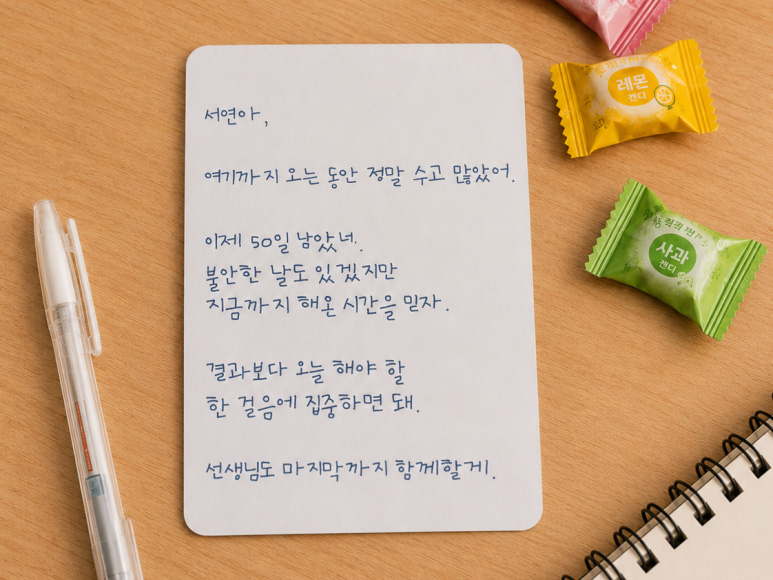 서연아,
여기까지 오는 동안 정말 수고 많았어.
이제 50일 남았네.
불안한 날도 있겠지만
지금까지 해온 시간을 믿자.
결과보다 오늘 해야 할
한 걸음에 집중하면 돼.
선생님도 마지막까지 함께할게.
레몬
캔디
사과
캔디